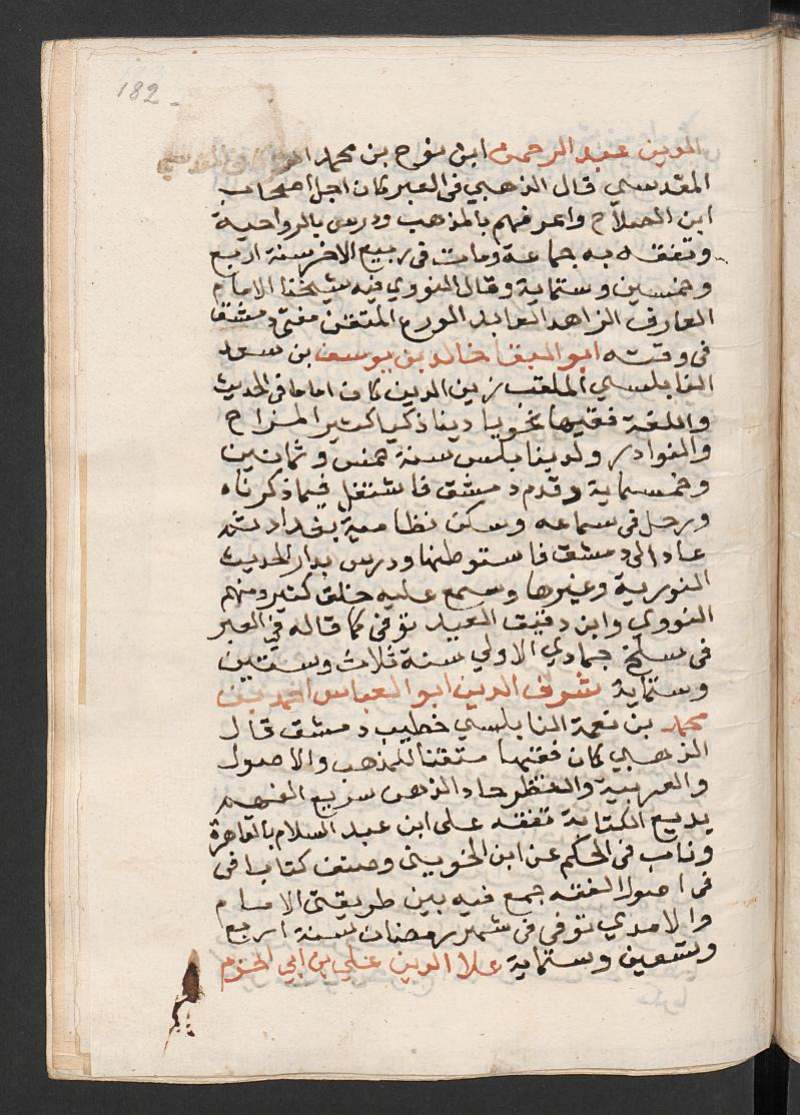 182
الدين عبد الرحمن ابن نوح بن محمد
المقدسي قال الذهبي في العبر كان اجل اصحاب
ابن الصلاح واعرفهم بالمذهب ودرس بالرواحية
وتفقه به جماعة ومات في ربيع الاخر سنة اربع
وخمسين وستماية وقال النووي فيه شيخنا الامام
العارف الزاهد العابد الورع المتقن مفتي دمشق
في وقته ابو البقا خالد بن يوسف بن سعد
النابلسي الملقب زين الدين كان اماما في الحديث
واللغة فقيها نحويا دينا ذكيا كثير المزاح
والنوادر ولد بنابلس سنة خمس وثمانين
وخمسماية وقدم دمشق فاشتغل فيما ذكرناه
ورحل في سماعه وسكن نظامية بغداد ثم
عاد الى دمشق فاستوطنها ودرس بدار الحديث
النورية وغيرها وسمع عليه خلق كثير ومنهم
النووي وابن دقيق العيد توفي كما قاله في العبر
في سلخ جمادي الاولي سنة ثلاث وستين
وستماية شرف الدين ابو العباس احمد بن
محمد بن نعمة النابلسي خطيب دمشق قال
الذهبي كان فقيها متقنا للمذهب والاصول
والعربية والنظر حاد الذهن سريع الفهم
بديع الكتابة تفقه على ابن عبد السلام بالقاهرة
وناب في الحكم عن ابن الخويي وصنف كتابا في
في اصول الفقه جمع فيه بين طريقتي الامام
والامدي توفي في شهر رمضان سنة اربع
وتسعين وستماية علا الدين علي بن ابي الحزم